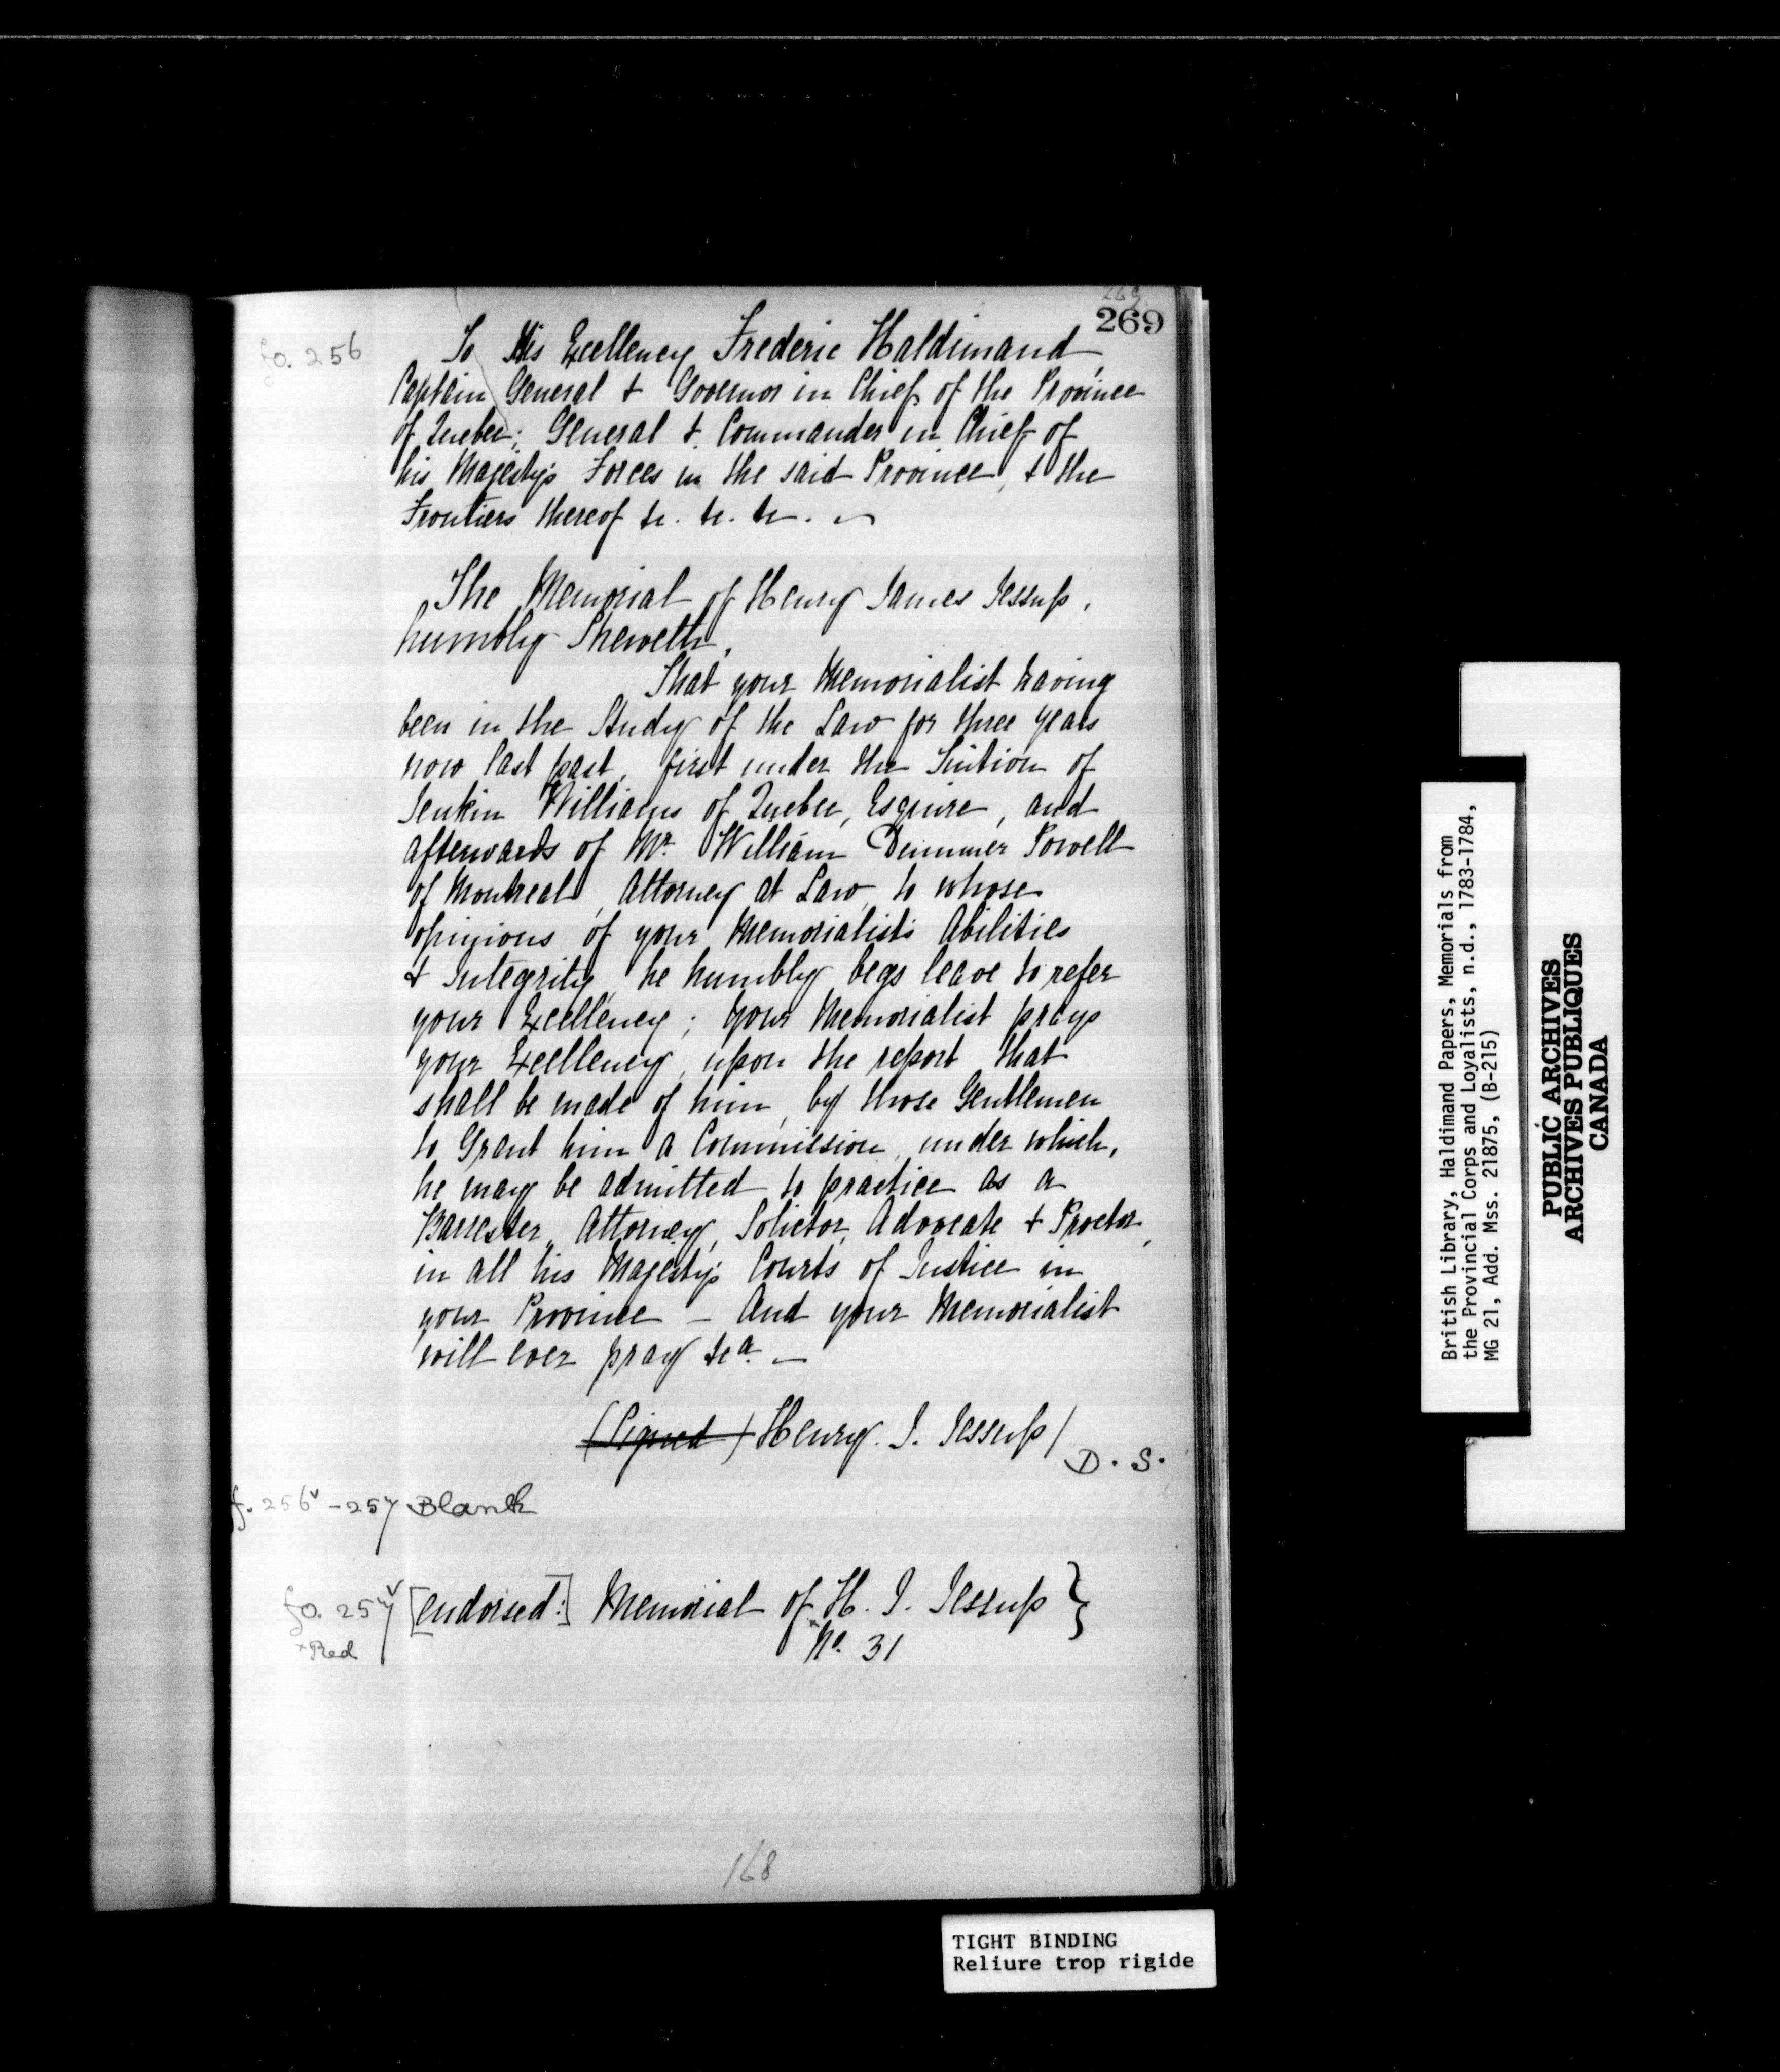 269
269
fo. 256
To His Excellency Frederic Haldimand,
Captain General & Governor in Chief of the Province
of Quebec; General & Commander in Chief of
his Majesty's Forces in the said Province, & the
Frontiers thereof &c. &c. &c. —
The Memorial of Henry James Jessup,
humbly Sheweth,
That your Memorialist having
been in the Study of the Law for three years
now last past, first under the Tuition of
Jenkin Williams of Quebec, Esquire, and
afterwards of Mr. William Dummer Powell
of Montreal, Attorney at Law, to whose
opinions of your Memorialist's Abilities
& Integrity, he humbly begs leave to refer
your Excellency; Your Memorialist prays
your Excellency, upon the report that
shall be made of him, by those Gentlemen
to Grant him a Commission, under which,
he may be admitted to practice as a
Barrester, Attorney, Solictor, Advocate & Proctor,
in all his Majesty's Courts of Justice in
your Province — And your Memorialist
will ever pray &ca. —
(Signed) Henry J. Jessup/
D. S.
f. 256v - 257 Blank
fo. 257v [endorsed:] Memorial of H. J. Jessup }
*Red *No. 31
168
TIGHT BINDING
Reliure trop rigide
British Library, Haldimand Papers, Memorials from
the Provincial Corps and Loyalists, n.d., 1783-1784,
MG 21, Add. Mss. 21875, (B-215)
PUBLIC ARCHIVES
ARCHIVES PUBLIQUES
CANADA